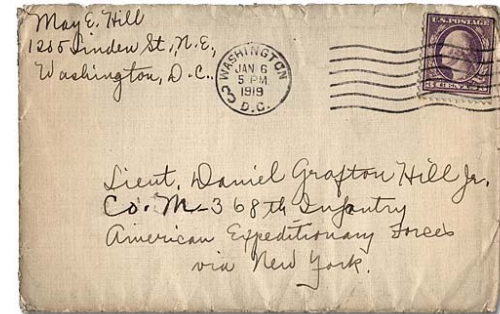 May E. Hill
1205 Linden St., N.E.,
Washington, D.C.,
WASHINGTON
JAN 6
5 PM
1919
3
D.C.
U.S. POSTAGE
3 CENTS 3
Lieut. Daniel Grafton Hill Jr.
Co. M - 368th Infantry
American Expeditionary Forces
via New York.